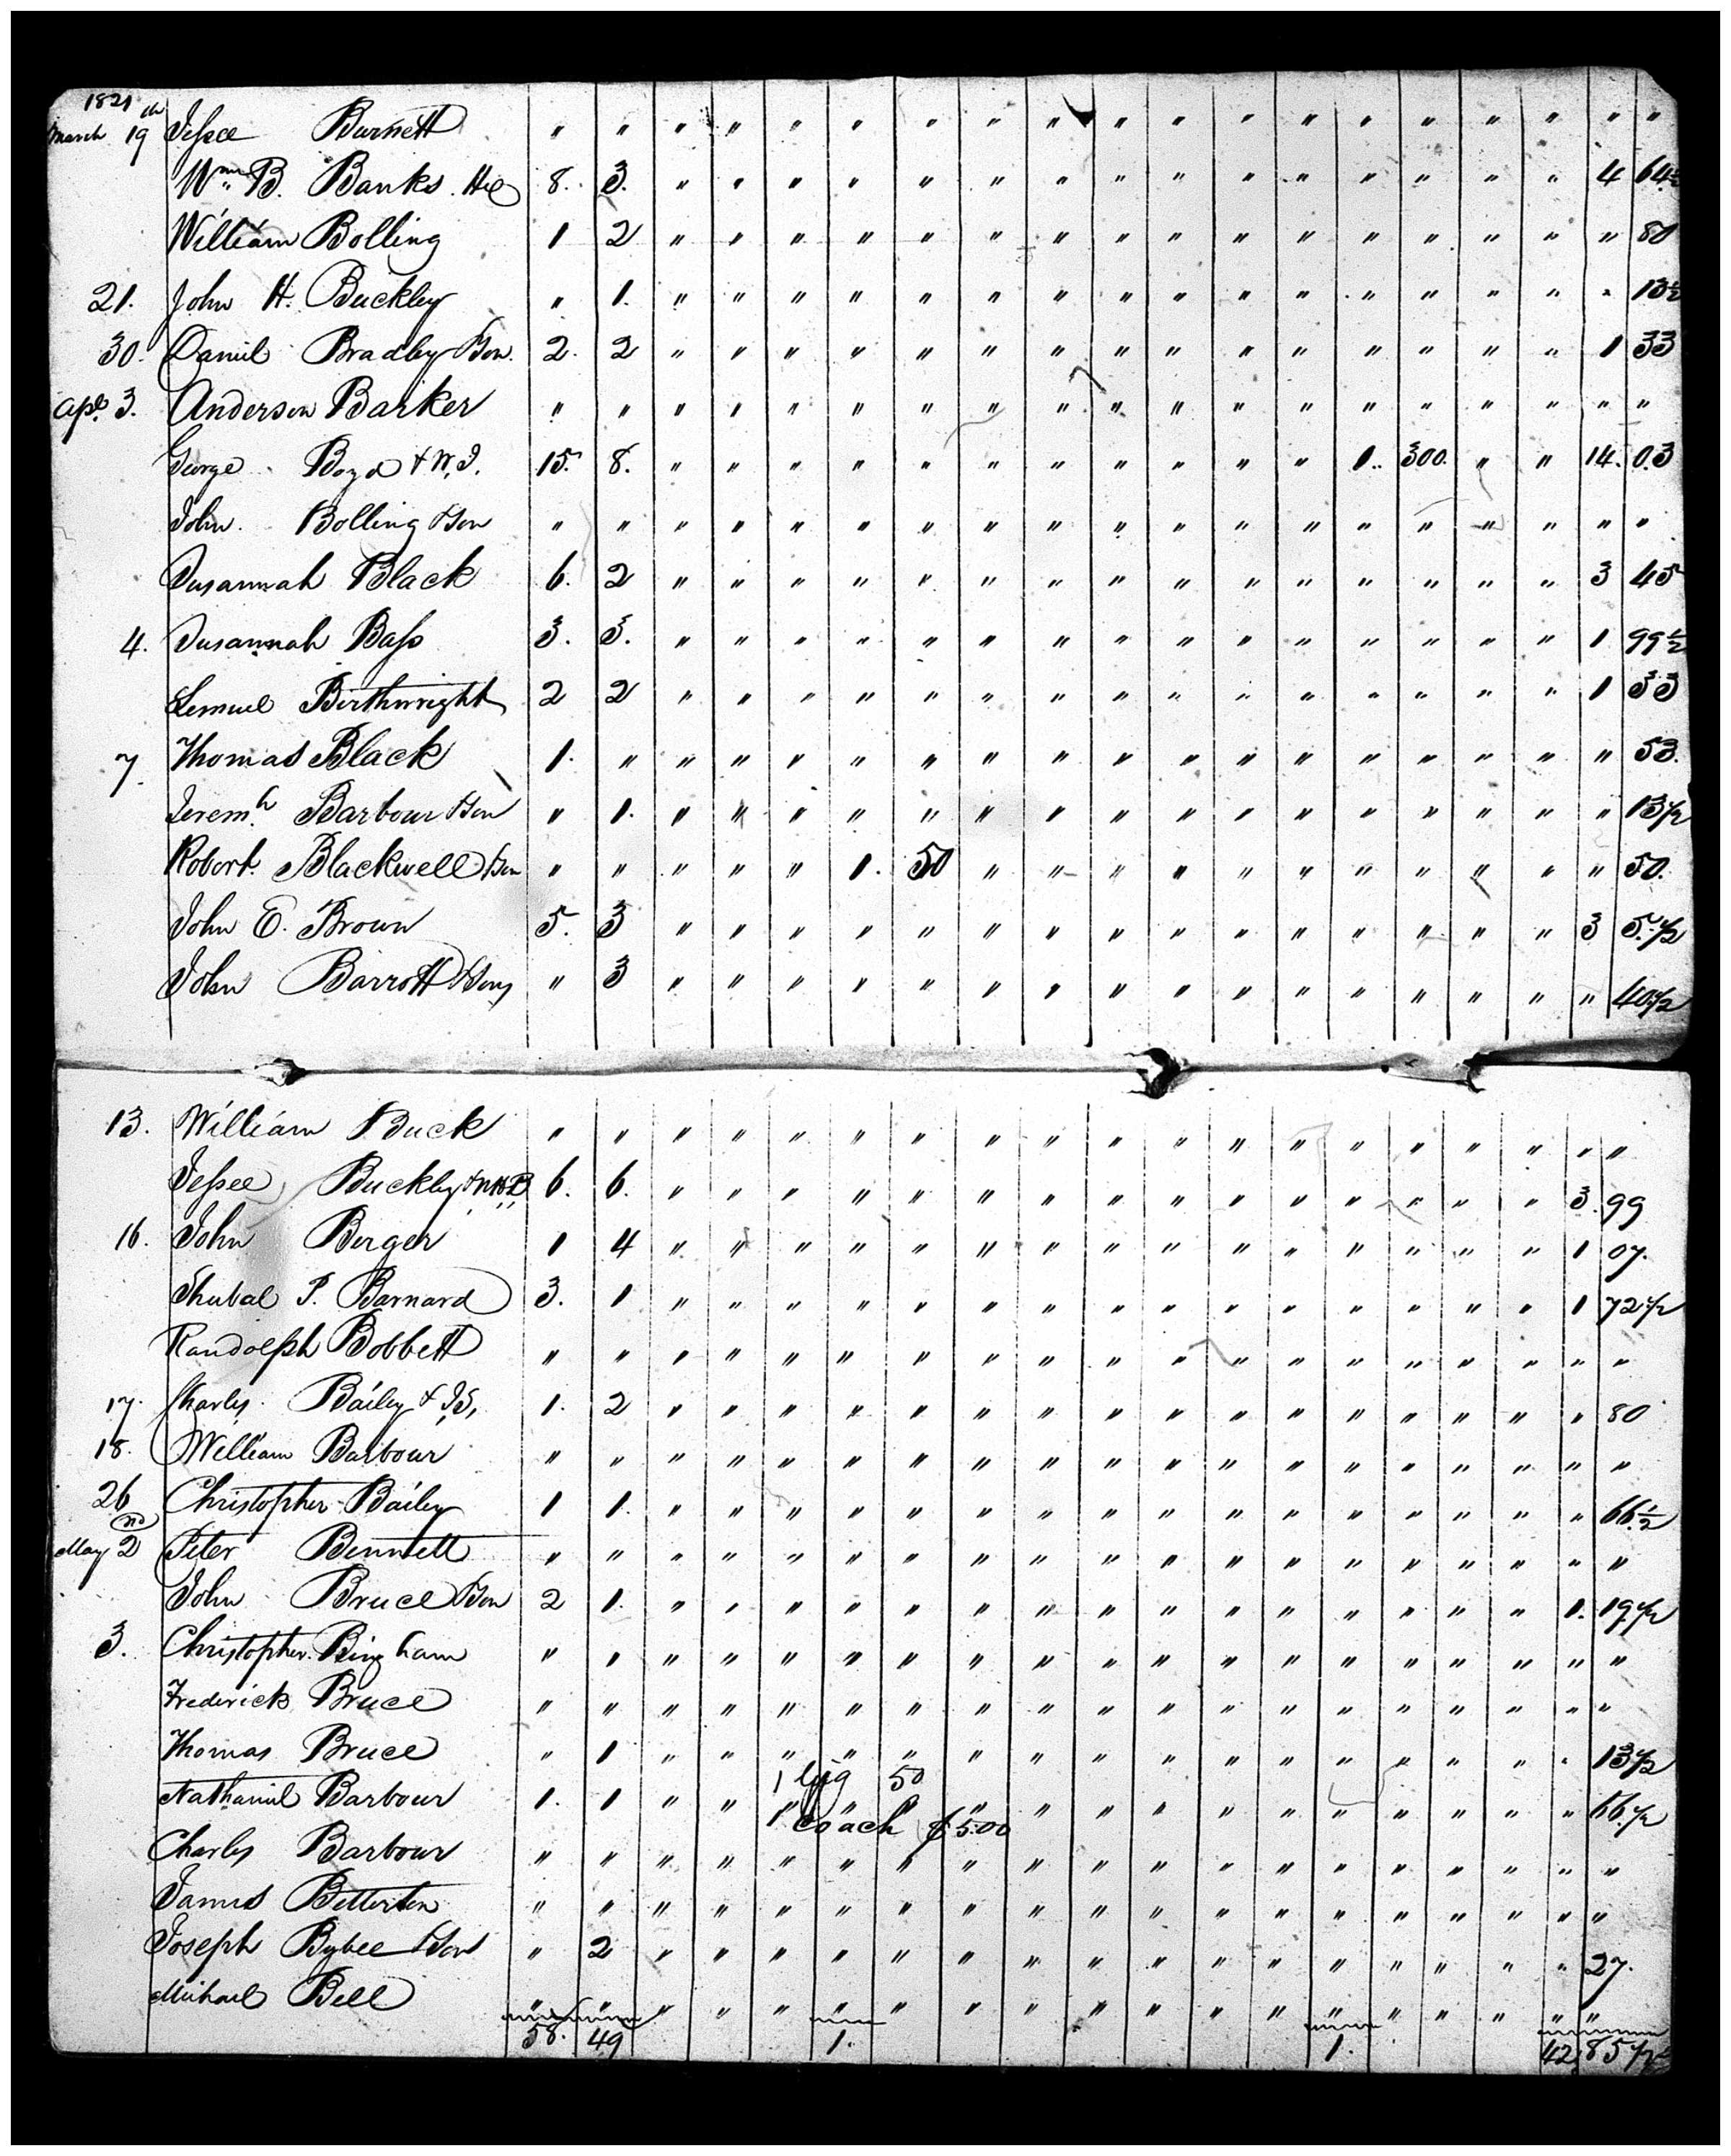 1821
March 19th Jessee Burnett " " " " " " " " " " " " " " " " " " "
Wm B. Banks 8. 3. " " " " " " " " " " " " " " " 4 64½
William Bolling 1 2 " " " " " " " " " " " " " " " " 80
21. John H. Buckley " 1. " " " " " " " " " " " " " " " " 13½
30. Daniel Bradley Son. 2. 2 " " " " " " " " " " " " " " " 1 33
Apl. 3. Anderson Barker " " " " " " " " " " " " " " " " " " "
George Boyd & W. J. 15. 8. " " " " " " " " " " " 1.. 300. " " 14. 03
John. Bolling Son " " " " " " " " " " " " " " " " " " "
Susannah Black 6. 2 " " " " " " " " " " " " " " " 3 45
4. Susannah Bass 3. 3. " " " " " " " " " " " " " " " 1 99½
Lemuel Birthwright 2 2 " " " " " " " " " " " " " " " 1 33
7 Thomas Black 1. " " " " " " " " " " " " " " " " " 53.
Jeremh. Barbour Son " 1. " " " " " " " " " " " " " " " " 13½
Robert. Blackwell Son " " " " " 1. 50 " " " " " " " " " " " 50.
John E. Brown 5. 3 " " " " " " " " " " " " " " " 3 5.½
John Barrott Sons " 3 " " " " " " " " " " " " " " " " 40½
13. William Buck " " " " " " " " " " " " " " " " " " "
Jessee Buckley & 6. 6. " " " " " " " " " " " " " " " 3. 99
16. John Berger 1 4 " " " " " " " " " " " " " " " 1 07.
Shubal P. Barnard 3. 1 " " " " " " " " " " " " " " " 1 72½
Randolph Bobbett " " " " " " " " " " " " " " " " " " "
17. Charles. Bailey & J. S. 1. 2 " " " " " " " " " " " " " " " " 80
18. William Barbour " " " " " " " " " " " " " " " " " " "
26 Christopher Bailey 1 1. " " " " " " " " " " " " " " " " 66½
May 2nd Peter Bennett " " " " " " " " " " " " " " " " " " "
John Bruce Son 2 1. " " " " " " " " " " " " " " " 1. 19½
3. Christopher. Bingham " " " " " " " " " " " " " " " " " " "
Frederick Bruce " " " " " " " " " " " " " " " " " " "
Thomas Bruce " 1 " " " " " " " " " " " " " " " " 13½
1 Gig 50
Nathaniel Barbour 1. 1 " " " " " " " " " " " " " " " " 66.½
1 Coach $500
Charles Barbour " " " " " " " " " " " " " " " " " " "
James Betterton " " " " " " " " " " " " " " " " " " "
Joseph Bybee Son " 2 " " " " " " " " " " " " " " " " 27.
Michael Bell " " " " " " " " " " " " " " " " " " "
58. 49 1. 1. 42 85½